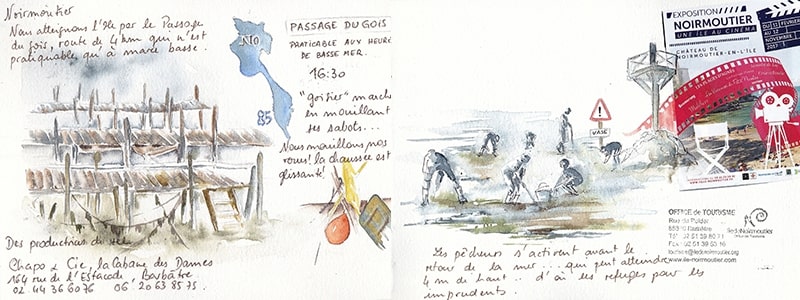 Noirmoutier
Nous atteignons l'île par le Passage
du gois, route de 4 km qui n'est
pratiquable qu'à marée basse.
NO
85
PASSAGE DU GOIS
PRATICABLE AUX HEURES
DE BASSE MER.
16:30
"goisier" marche
en mouillant
ses sabots...
Nous mouillons nos
roues! la chaussée est
glissante!
Des producteurs de sel
Chapo & Cie, la Cabane des Dames
164 rue de l'Estacade Barbâtre
02 44 36 60 76 06 20 63 85 75.
VASE
EXPOSITION
NOIRMOUTIER
UNE ÎLE AU CINÉMA
CHÂTEAU DE
NOIRMOUTIER-EN-L'ÎLE
DU 11 FÉVRIER
AU 12
NOVEMBRE
2017
OFFICE de TOURISME
Rue du Polder
Barbâtre
île de Noirmoutier
www.ile-noirmoutier.com
Les pêcheurs s'activent avant le
retour de la mer... qui peut atteindre
4 m de haut.. d'où les refuges pour les
imprudents.